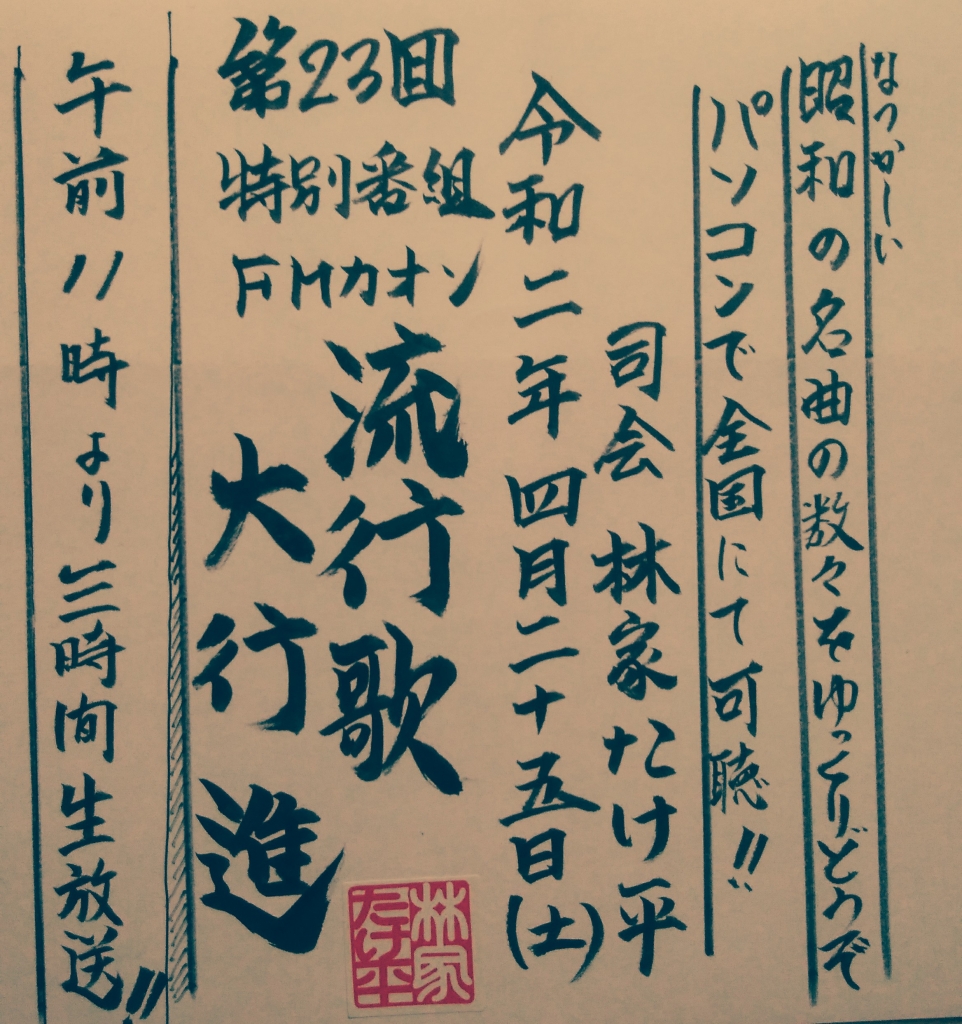 なつかしい
昭和の名曲の数々をゆっくりどうぞ
パソコンで全国にて可聴!!
司会 林家たけ平
令和二年四月二十五日(土)
第23回
特別番組
FMカオン
流行歌
大行進
午前11時より三時間生放送!!
林家
たけ平